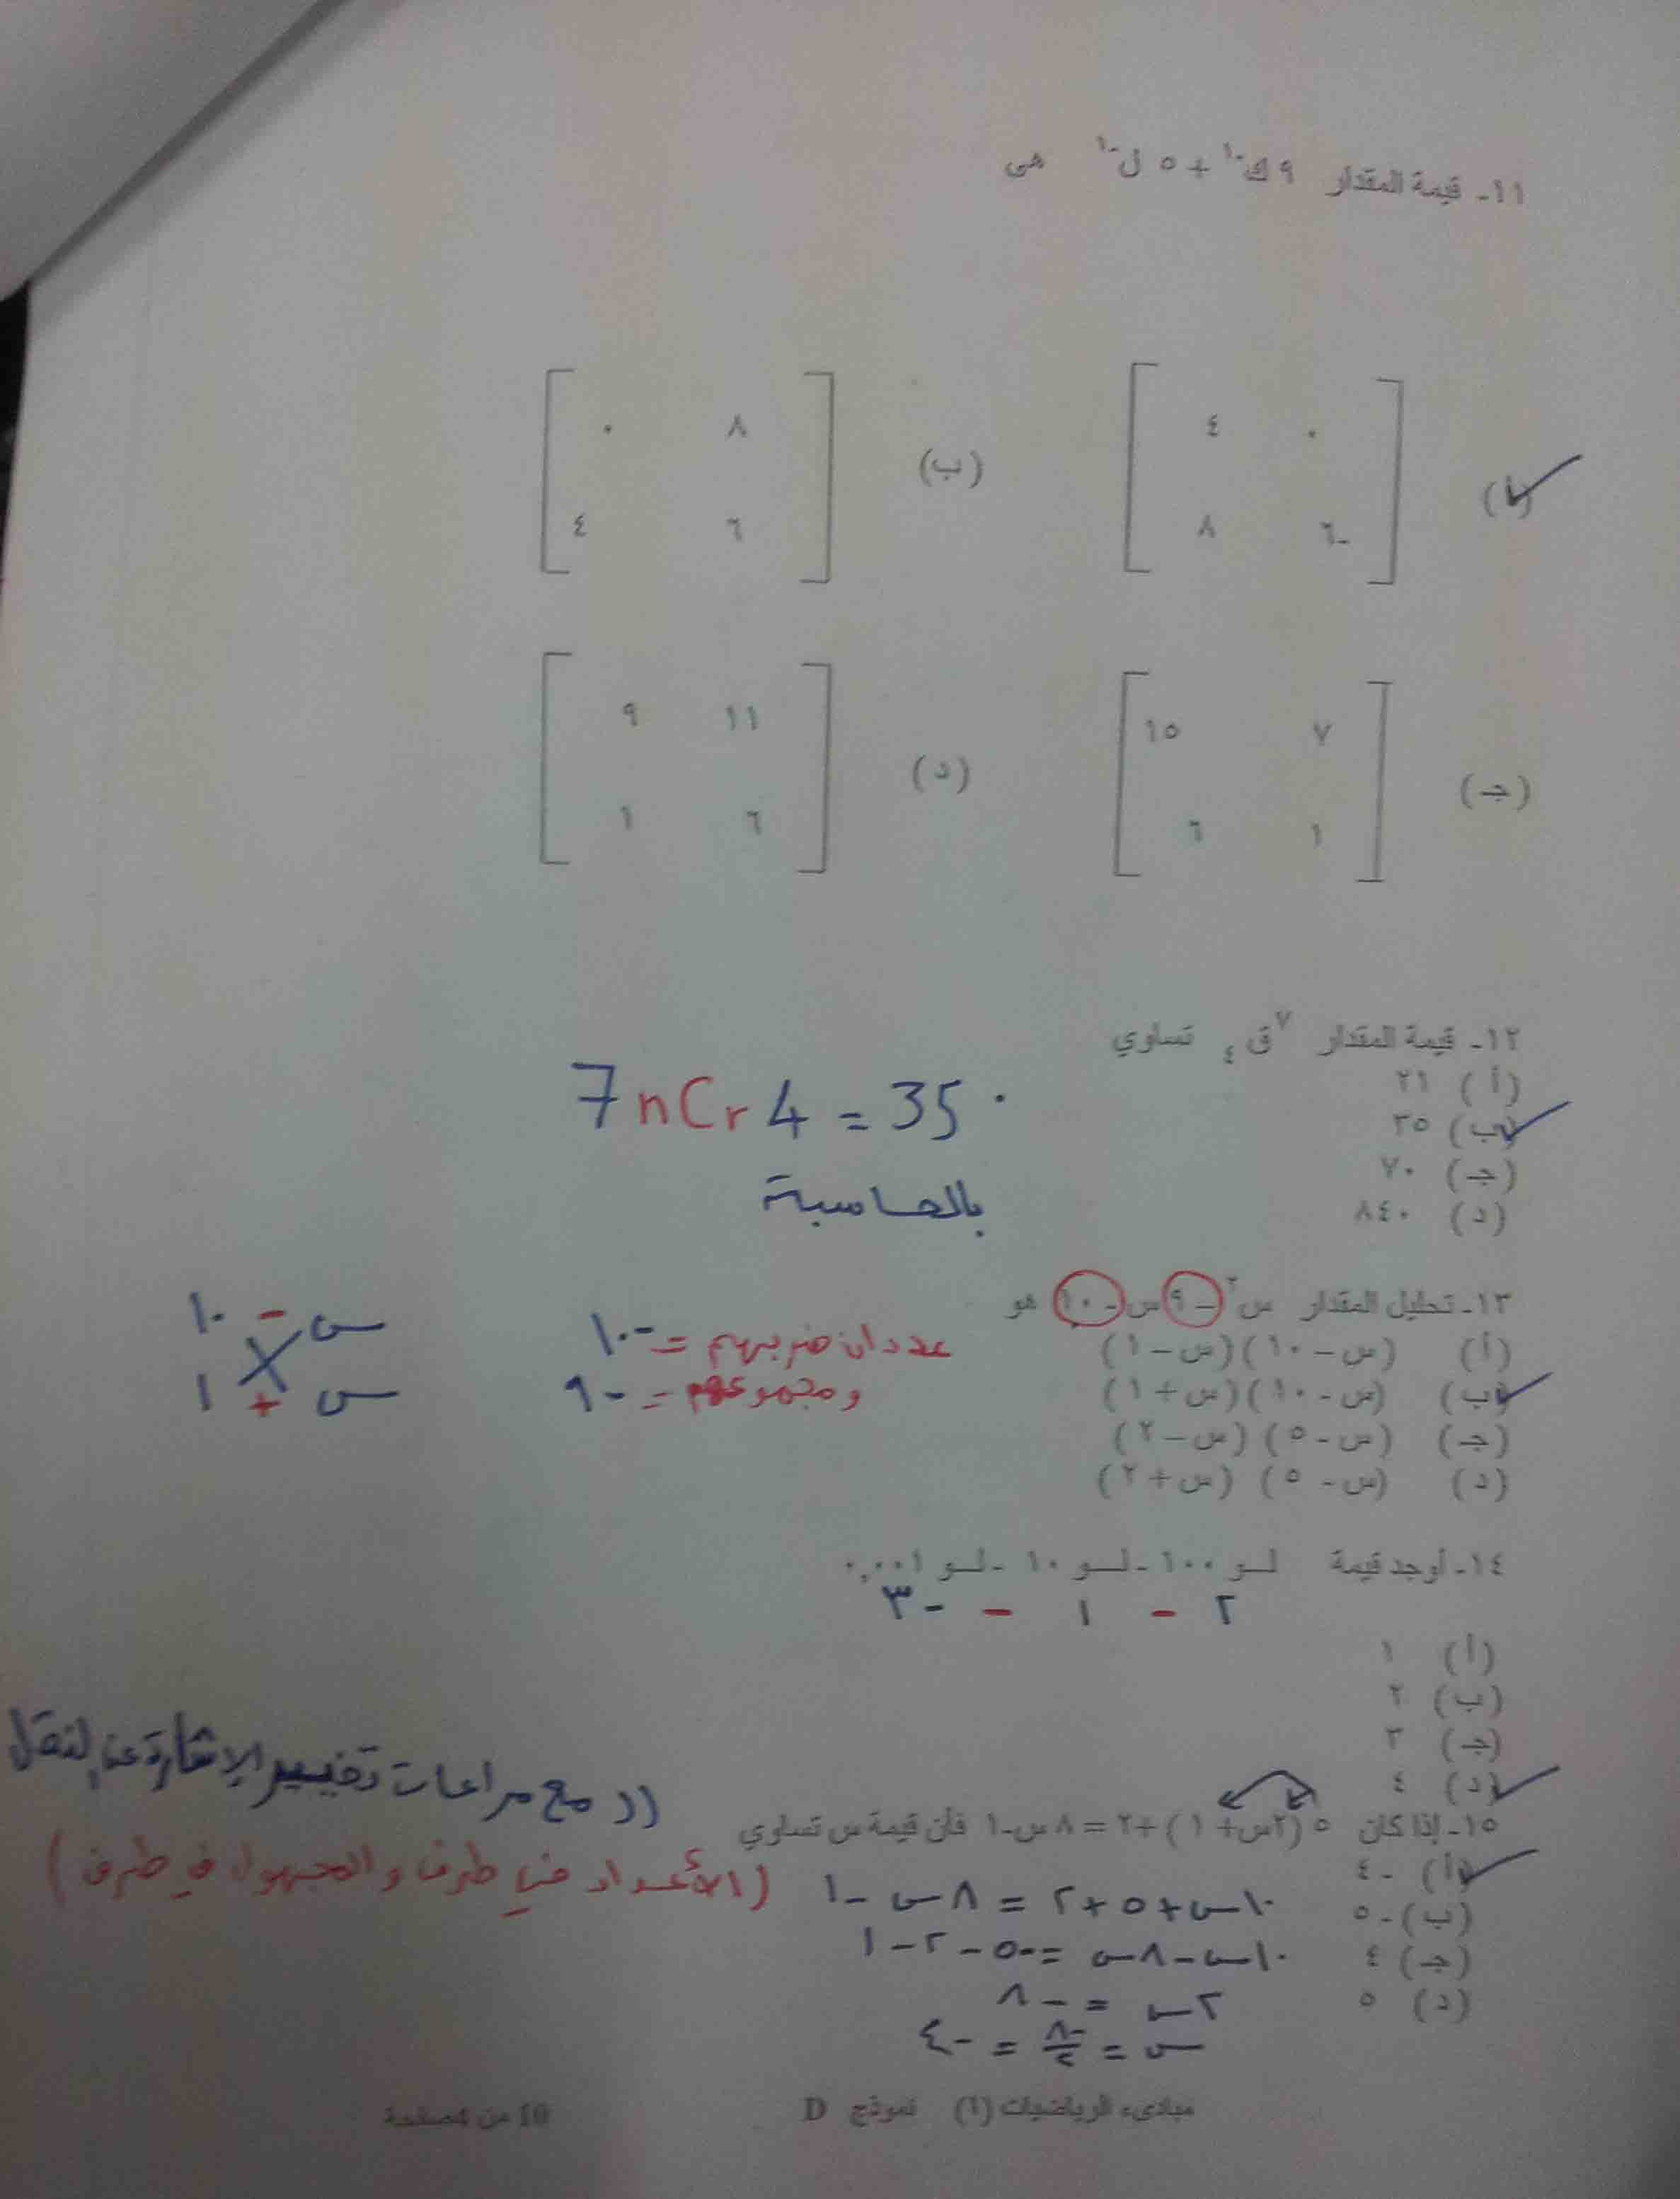 ١١- قيمة المقدار ٩ ك-١ + ٥ ل-١ هى
(أ) ٠ ٤
-٦ ٨
(ب) ٨ ٠
٦ ٤
(جـ) ٧ ١٥
١ ٦
(د) ١١ ٩
٦ ١
١٢- قيمة المقدار ٧ق٤ تساوي
(أ) ٢١
(ب) ٣٥
(جـ) ٧٠
(د) ٨٤٠
7 nCr 4 = 35
بالحاسبة
١٣- تحليل المقدار س٢ - ٩ س - ١٠ هو
(أ) (س - ١٠)(س - ١)
(ب) (س - ١٠)(س + ١)
(جـ) (س - ٥)(س - ٢)
(د) (س - ٥)(س + ٢)
عددان ضربهم = -١٠
ومجموعهم = -٩
س - ١٠
س + ١
١٤- أوجد قيمة لـو ١٠٠ - لـو ١٠ - لـو ٠,٠٠١
٢ - ١ - -٣
(أ) ١
(ب) ٢
(جـ) ٣
(د) ٤
١٥- إذا كان ٥ (٢س + ١) + ٢ = ٨ س - ١ فأن قيمة س تساوي
(أ) -٤
(ب) -٥
(جـ) ٤
(د) ٥
(( مع مراعات تغيير الإشارة عند النقل
(الأعداد في طرف والمجهول في طرف)
١٠س + ٥ + ٢ = ٨س - ١
١٠س - ٨س = -٥ - ٢ - ١
٢س = -٨
س = -٨/٢ = -٤
مبادىء الرياضيات (١) نموذج D
10 من صفحة